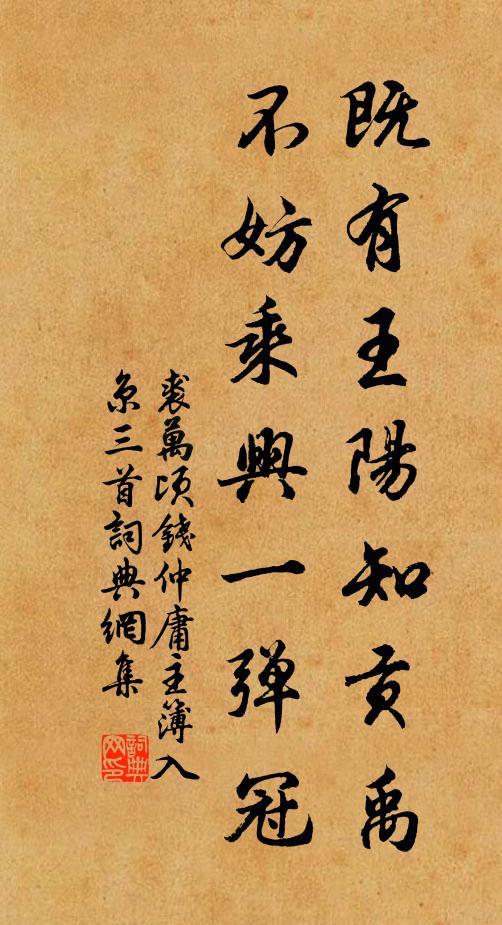 既有王陽知贡禹
不妨乘興一弹冠
裘萬頃錢仲庸主簿入
京三首詞典網集
詞典
网印